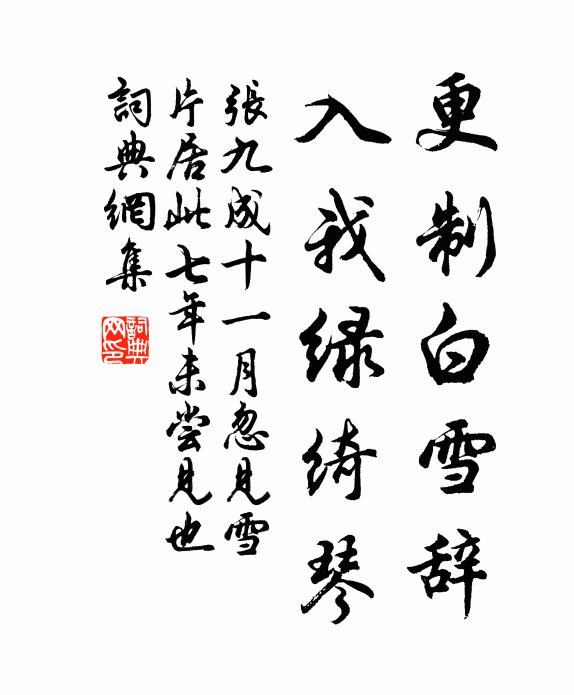 更制白雪辞
入我绿绮琴
張九成十一月忽見雪
片居此七年未嘗見也
詞典網集
詞典网印